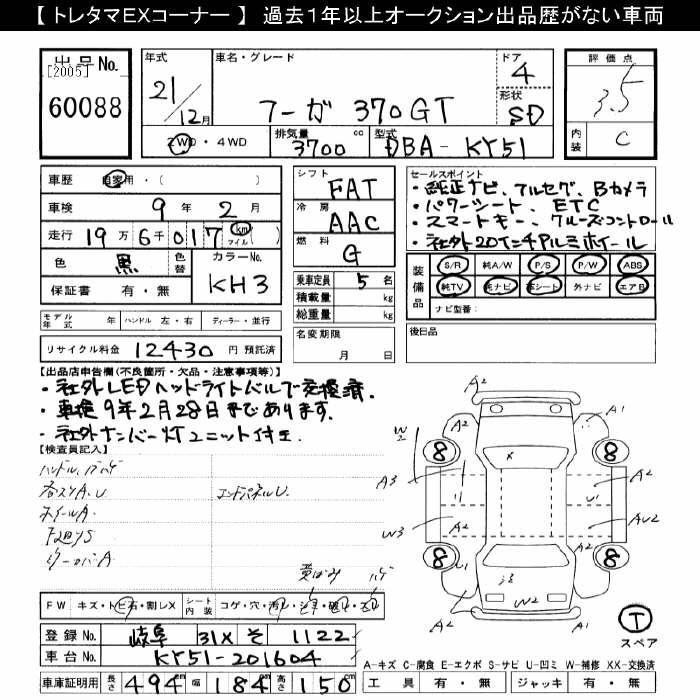 【 トレタマEXコーナー 】 過去１年以上オークション出品歴がない車両
出品
[2005]
No.
60088
年式
21/12月
車名・グレード
フーガ 370GT
ドア
4
形状
SD
評価点
3.5
内装
C
2WD・4WD
排気量
3700 cc
型式
DBA-KY51
車歴 自家用・( )
車検 9年 2月
走行 19万6千017 km マイル ( )
色 黒 色替 カラーNo. KH3
保証書 有・無
シフト
FAT
冷房
AAC
燃料
G
乗車定員 5名
積載量 kg
総重量 kg
セールスポイント
・純正ナビ、フルセグ、Bカメラ
・パワーシート、ETC
・スマートキー、クルーズコントロール
・社外20インチアルミホイール
装備品
S/R 純A/W P/S P/W ABS
純TV 純ナビ 革シート 外ナビ エアB
ナビ型番：
モデル年式 年 ハンドル 左・右 ディーラー・並行
リサイクル料金 12430 円 預託済
名変期限
月 日
後日品
【出品店申告欄(不良箇所・欠品・注意事項等)】
・社外LEDヘッドライトバルブ交換済.
・車検9年2月28日まであります.
・社外ナンバー灯ユニット付き
【検査員記入】
エンドパネルU.
ホイールA
黄ばみ
FW キズ・トビ石・割レX シート内装 コゲ・穴・汚レ・シミ・破レ・スレ
登録No. 岐阜 31X そ 1122
車台No. KY51-201604
車庫証明用 長さ 494 幅 184 高さ 150
A2
A1
A2
W2
8
8
X
A3
A2
U1
W3
A2
A2
AU2
8
8
U1
W2
A2
A2
A1
T
スペア
A-キズ C-腐食 E-エクボ S-サビ U-凹ミ W-補修 XX-交換済
工具 有・無 ジャッキ 有・無